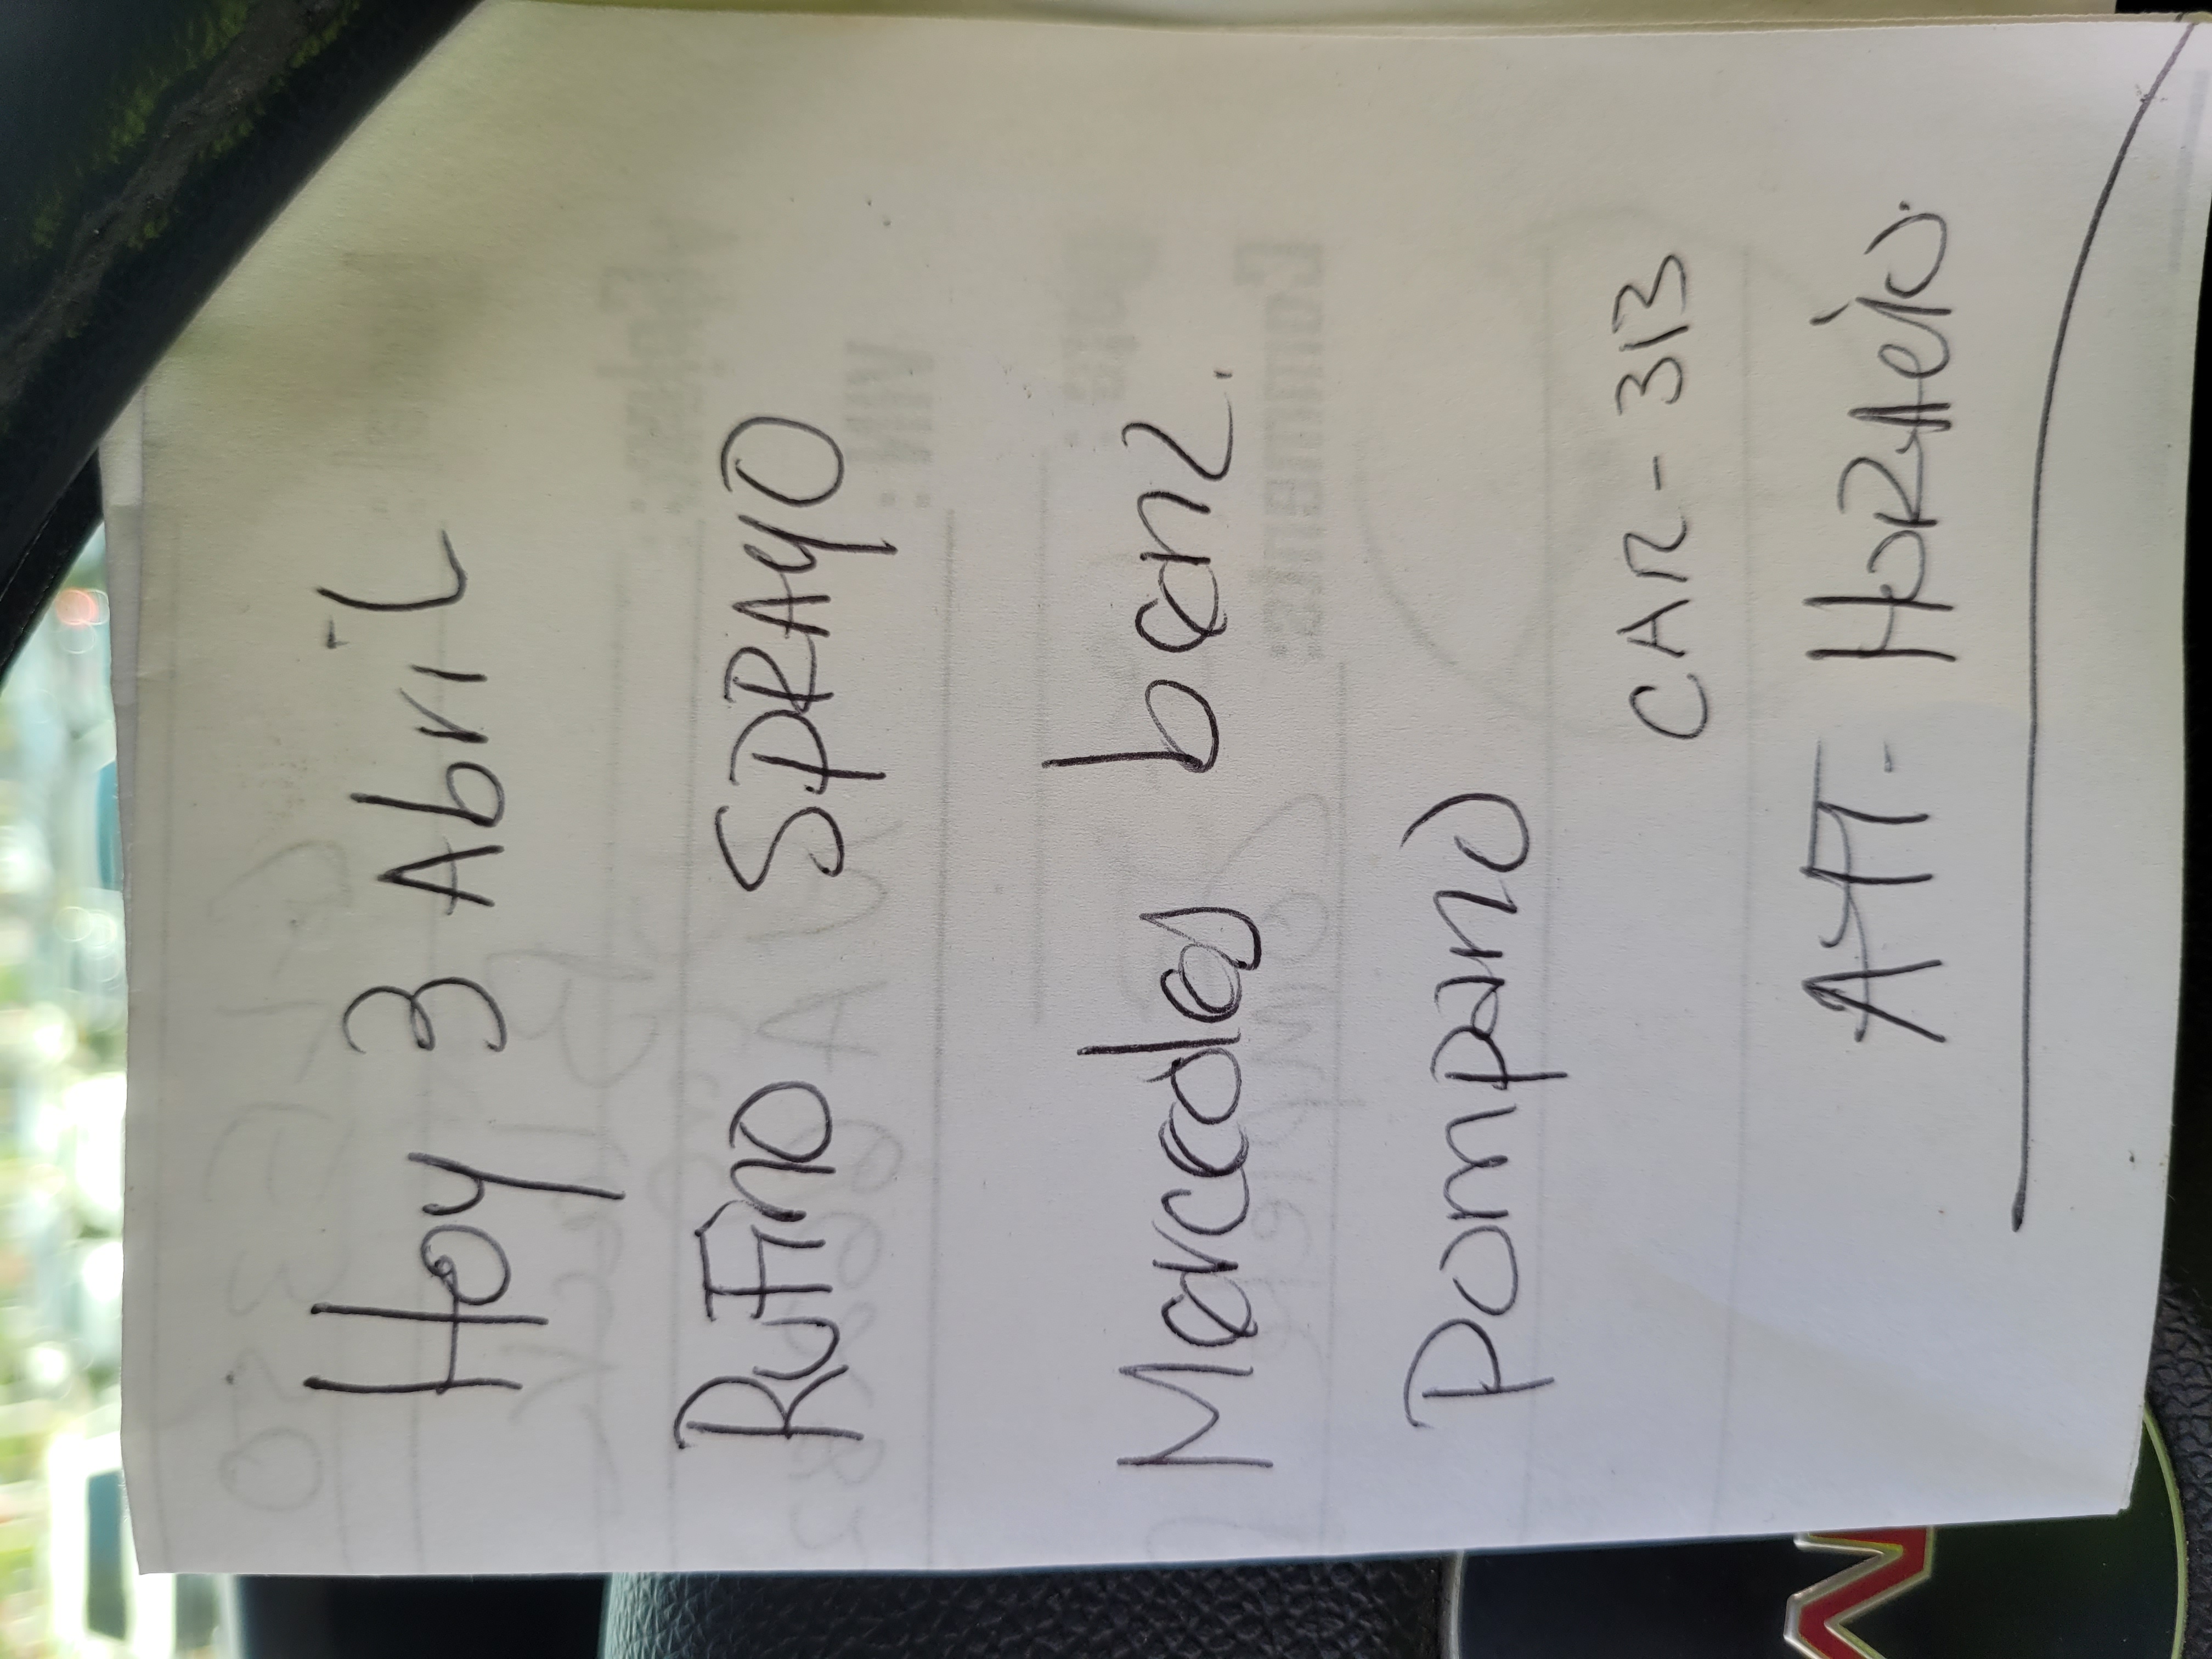 Hoy 3 Abril
RuFino SPRAyO
Mercedes benz.
Pompano
CAR-313
ATT- HORAcio.